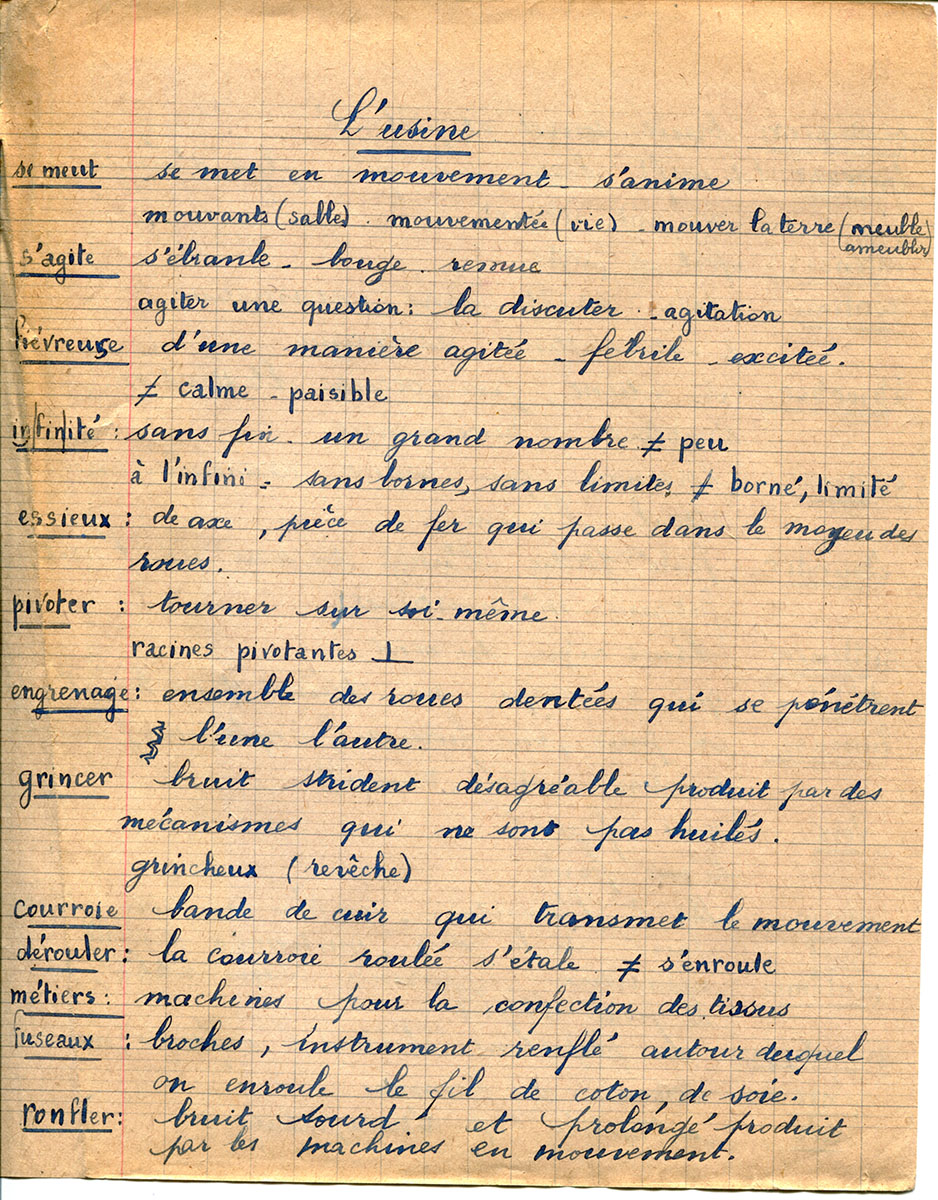 L'usine
se meut se met en mouvement - s'anime
mouvants (sable) - mouvementée (vie) - mouver la terre (meuble)
(ameublir)
s'agite s'ébranle - bouge - remue
agiter une question : la discuter - agitation
fiévreuse d'une manière agitée - fébrile - excitée.
≠ calme - paisible
infinité : sans fin - un grand nombre ≠ peu
à l'infini = sans bornes, sans limites ≠ borné, limité
essieux : de axe, pièce de fer qui passe dans le moyeu des
roues.
pivoter : tourner sur soi-même.
racines pivotantes ⊥
engrenage : ensemble des roues dentées qui se pénétrent
l'une l'autre.
grincer bruit strident désagréable produit par des
mécanismes qui ne sont pas huilés.
grincheux (revêche)
courroie bande de cuir qui transmet le mouvement
dérouler : la courroie roulée s'étale ≠ s'enroule
métiers : machines pour la confection des tissus
fuseaux : broches, instrument renflé autour duquel
on enroule le fil de coton, de soie.
ronfler : bruit sourd et prolongé produit
par les machines en mouvement.